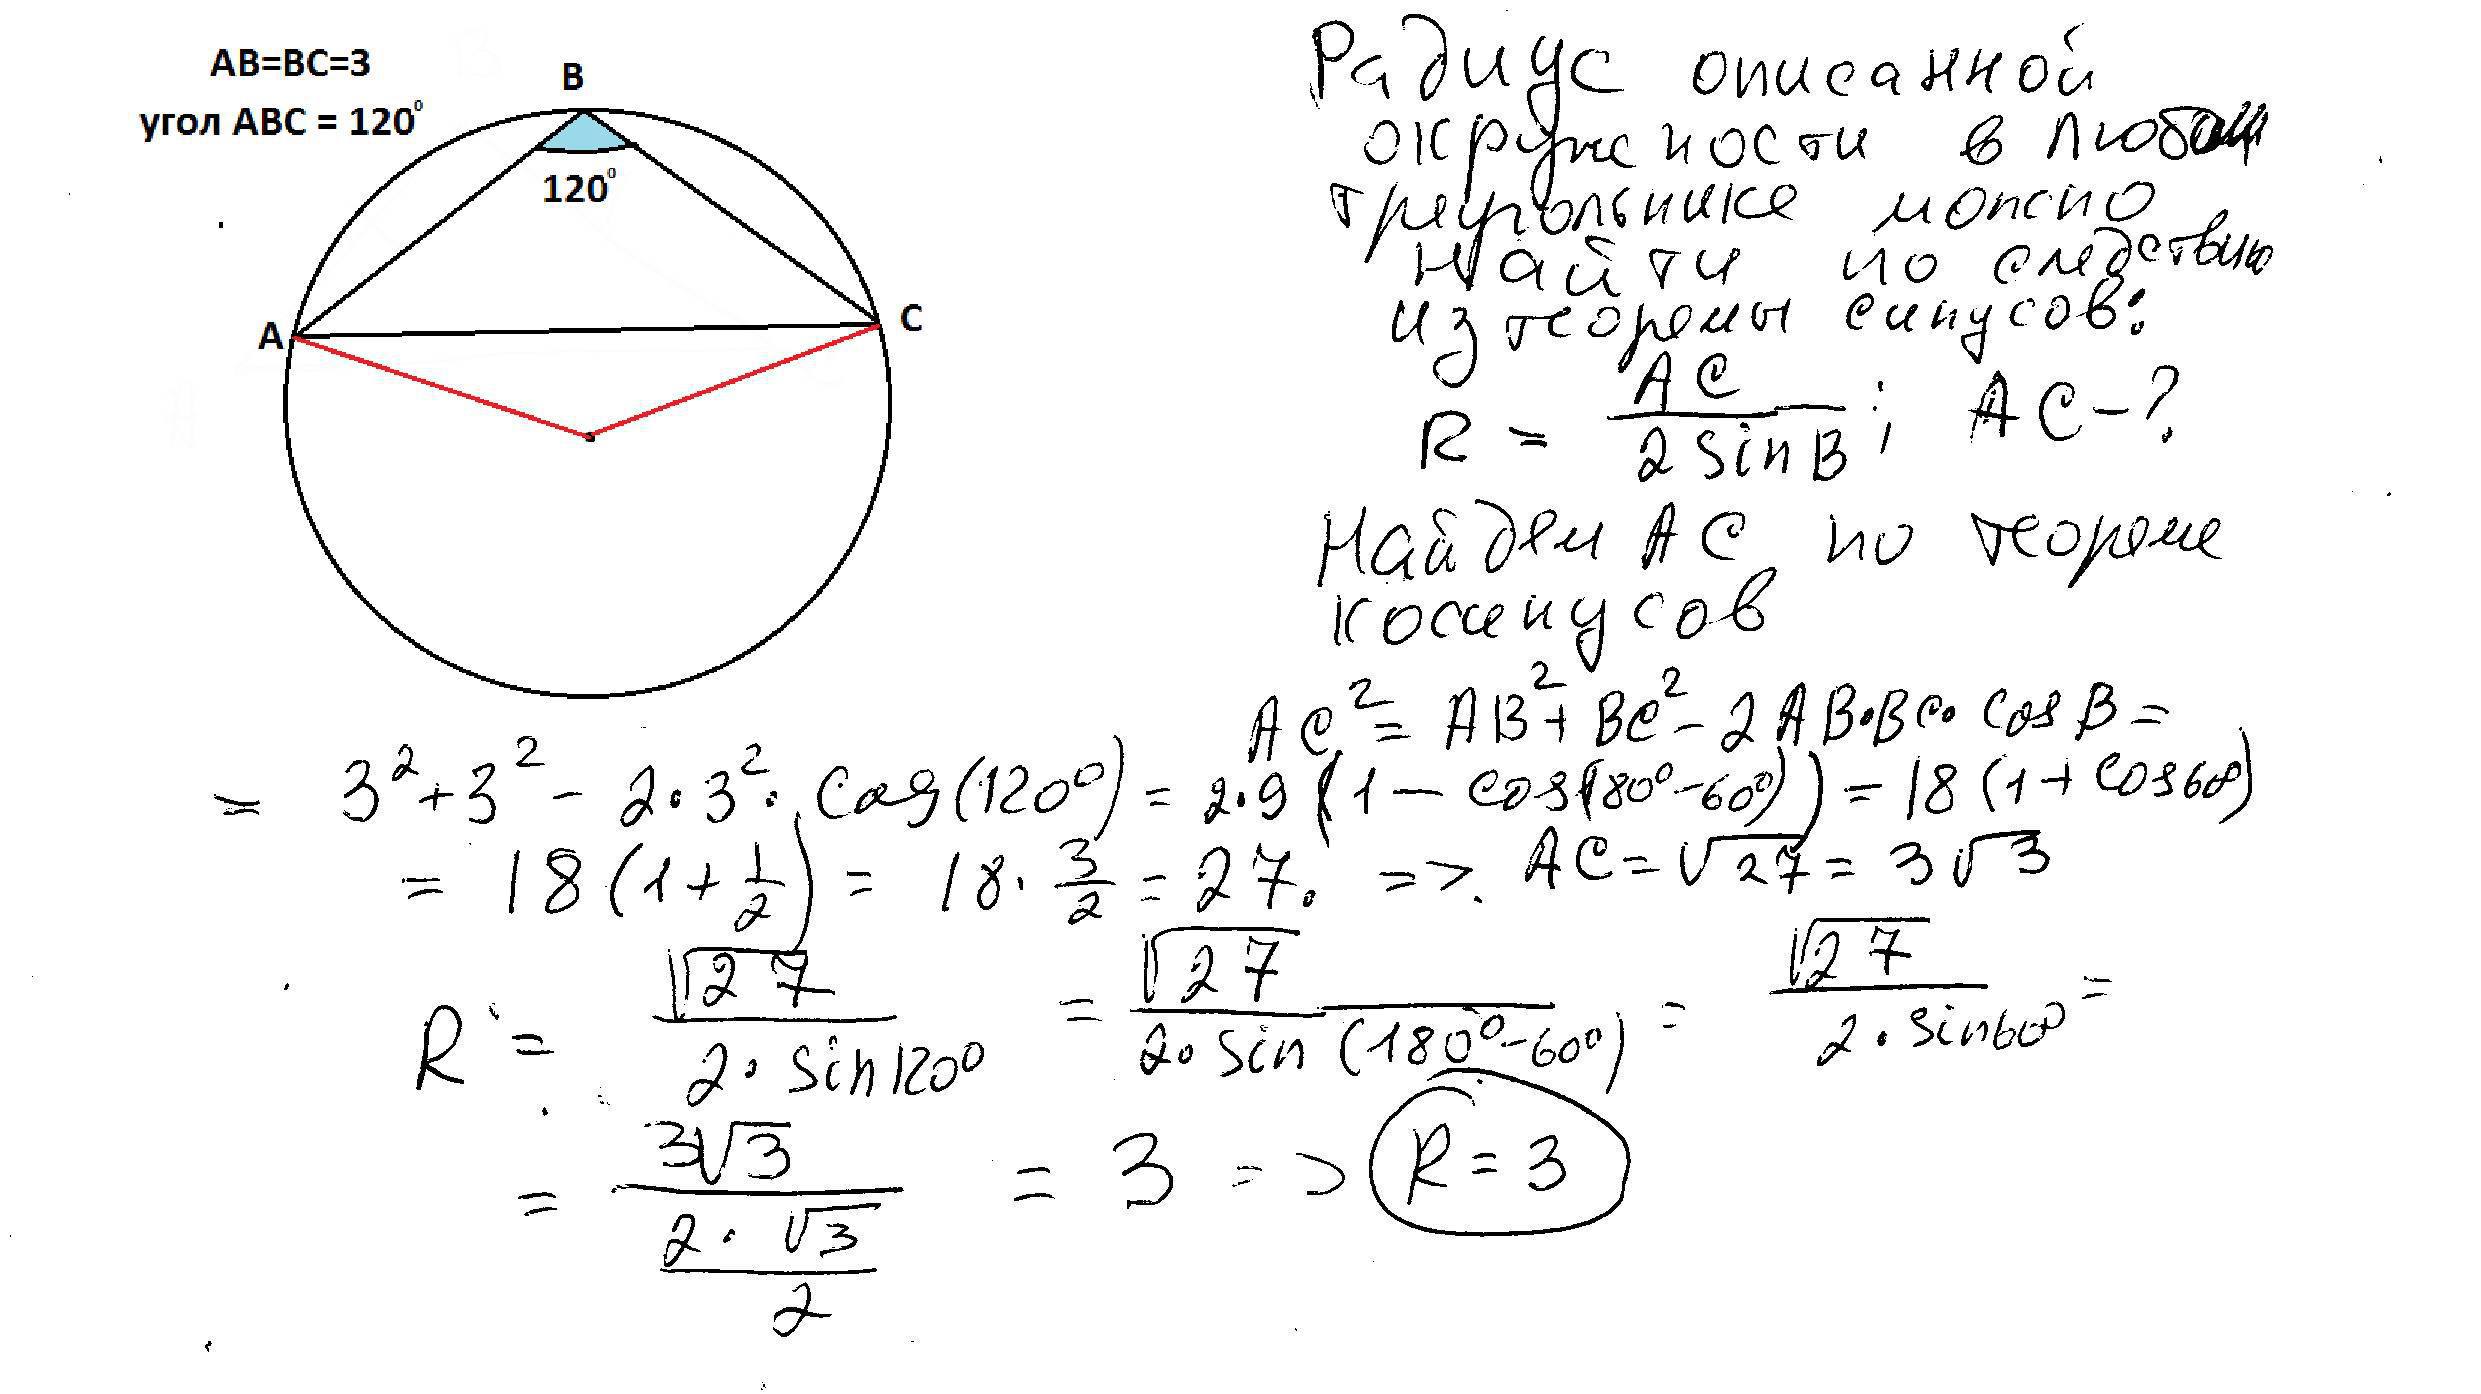 AB=BC=3
угол ABC = 120⁰
B
120⁰
A
C
Радиус описанной
окружности в любом
треугольнике можно
найти по следствию
из теоремы синусов:
R = AC / 2 sin B ; AC - ?
Найдем AC по теореме
косинусов
AC² = AB² + BC² - 2AB·BC·cos B =
= 3² + 3² - 2·3²·cos(120⁰) = 2·9(1 - cos(180⁰-60⁰)) = 18(1 + cos60⁰)
= 18(1 + 1/2) = 18·3/2 = 27. => AC = √27 = 3√3
R = √27 / 2·sin120⁰ = √27 / 2·sin(180⁰-60⁰) = √27 / 2·sin60⁰ =
= 3√3 / (2·√3 / 2) = 3 => R = 3